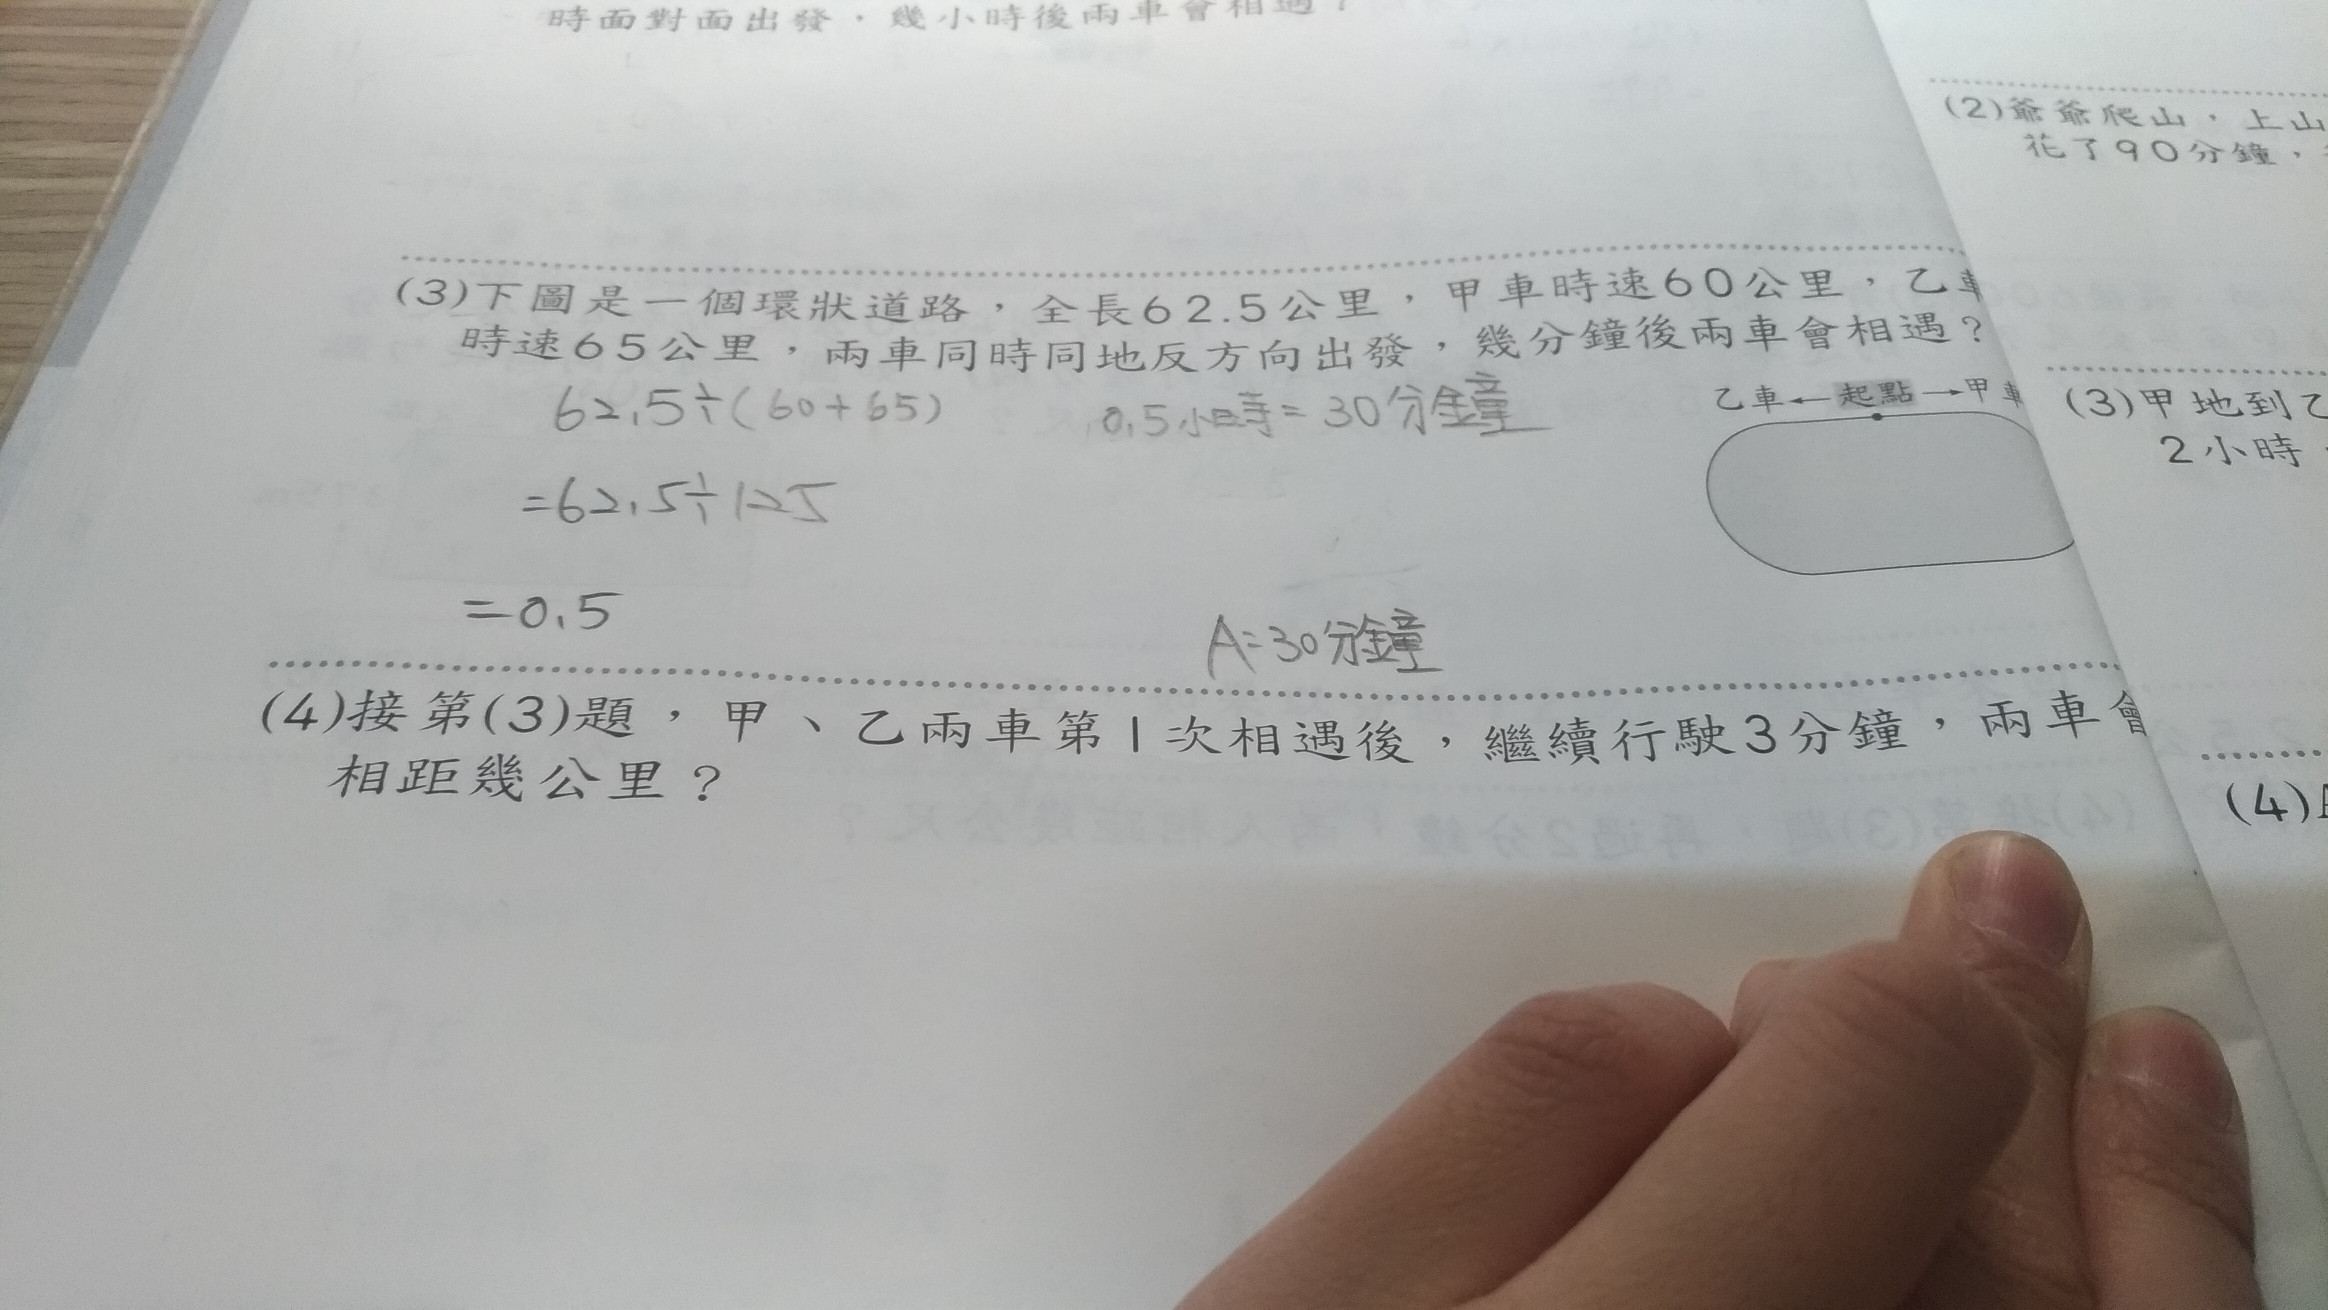 時面對面出發，幾小時後兩車會相遇？
(3)下圖是一個環狀道路，全長62.5公里，甲車時速60公里，乙車
時速65公里，兩車同時同地反方向出發，幾分鐘後兩車會相遇？
62.5÷(60+65)
0.5小時=30分鐘
乙車←起點→甲車
=62.5÷125
=0.5
A=30分鐘
(4)接第(3)題，甲、乙兩車第1次相遇後，繼續行駛3分鐘，兩車會
相距幾公里？
(2)爺爺爬山，上山
花了90分鐘，
(3)甲地到乙
2小時
(4)